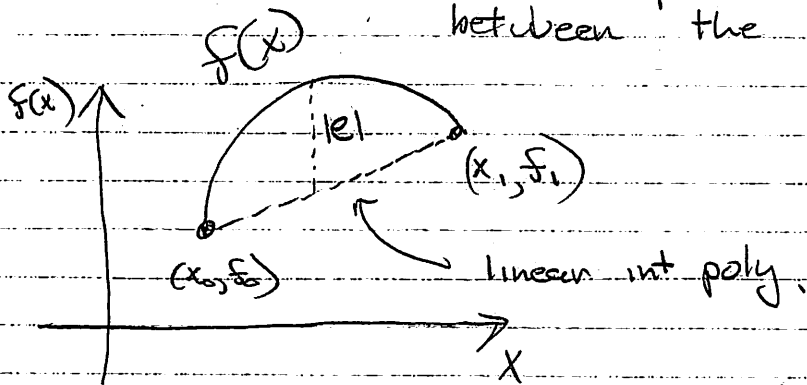 between the
f(x)
f(x)
|e|
(x₁, f₁)
(x₀, f₀)
linear int poly.
x